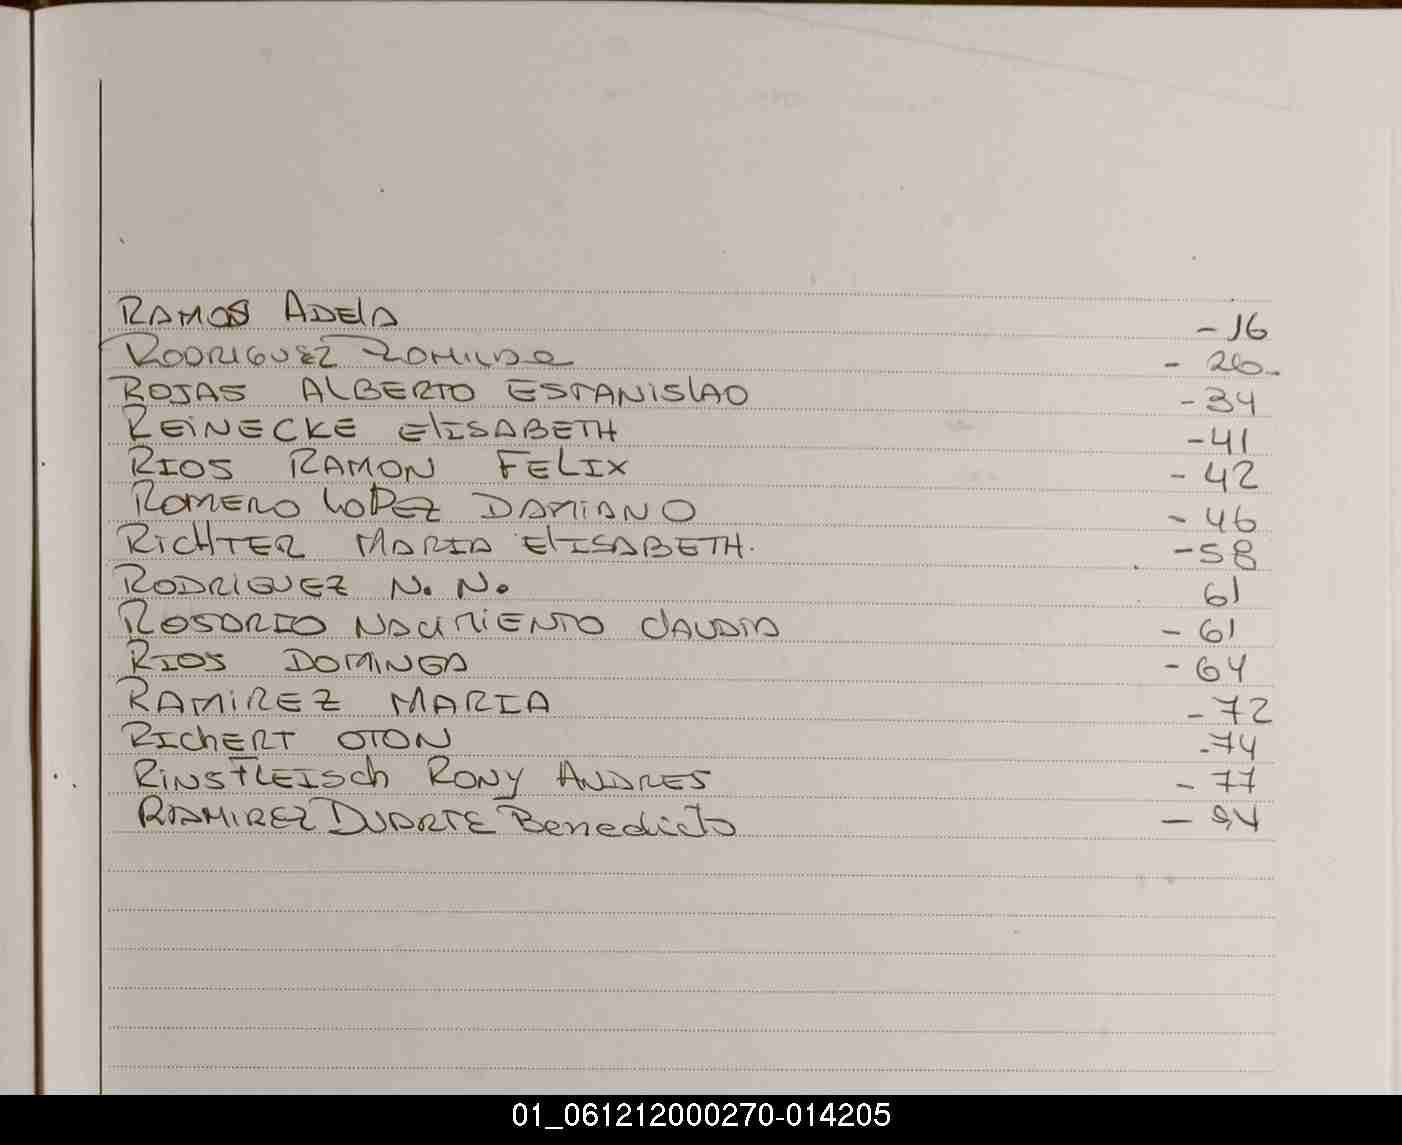 RAMOS ADELA - 16
RODRIGUEZ ROMILDA - 26.
ROJAS ALBERTO ESTANISLAO - 34
REINECKE ELISABETH - 41
RIOS RAMON FELIX - 42
ROMERO LOPEZ DAMIANO - 46
RICHTER MARIA ELISABETH. - 58
RODRIGUEZ N. N. 61
ROSARIO NACIMIENTO CLAUDIA - 61
RIOS DOMINGA - 64
RAMIREZ MARIA - 72
RICHERT OTON - 74
RINSFLEISCH RONY ANDRES - 77
RAMIREZ DUARTE Benedicto - 94
01_061212000270-014205